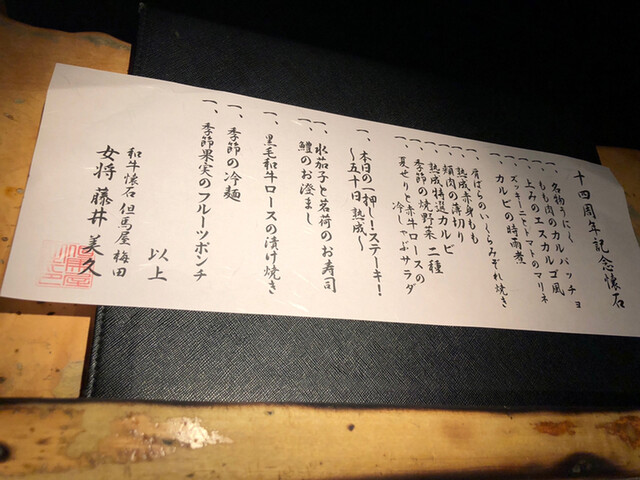 十四周年記念懐石
一、名物うにく
一、もも肉のカルパッチョ
一、上みのエスカルゴ風
一、ズッキーニとトマトのマリネ
一、カルビの時雨煮
一、肩ばらのいくらみぞれ焼き
一、熟成赤身もも
一、頬肉の薄切り
一、熟成特選カルビ
一、季節の焼野菜 二種
一、夏せりと赤牛ロースの
冷しゃぶサラダ
一、本日の一押し!ステーキ!
〜五十日熟成〜
一、水茄子と茗荷のお寿司
一、鱧のお澄まし
一、黒毛和牛ロースの漬け焼き
一、季節の冷麺
一、季節果実のフルーツポンチ
以上
和牛懐石 但馬屋 梅田
女将 藤井 美久